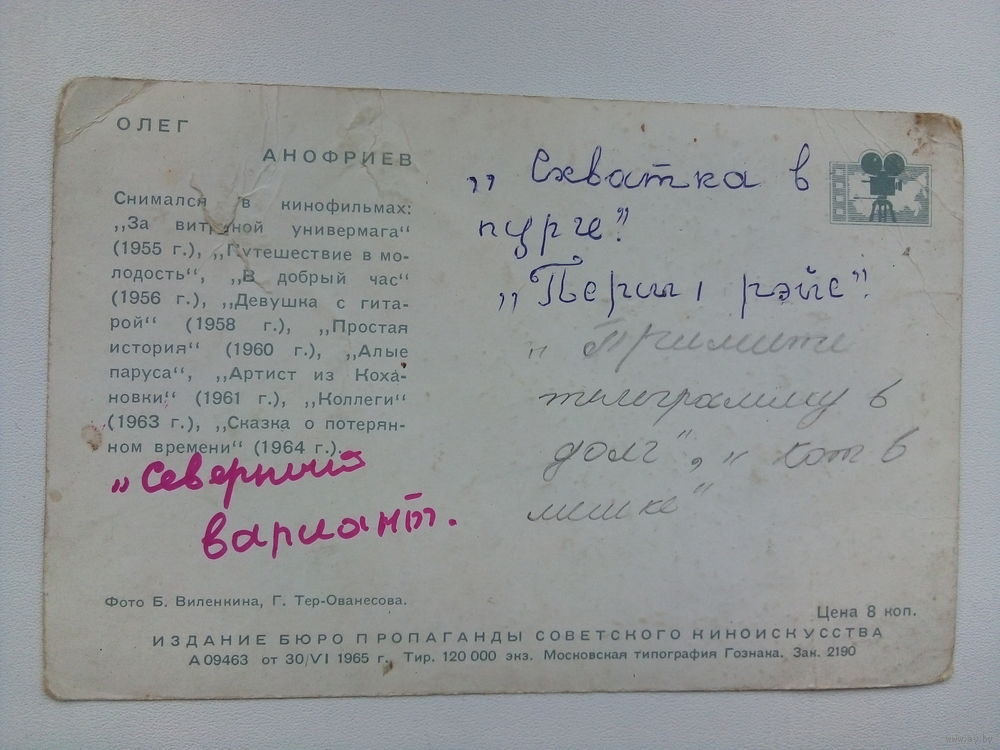 ОЛЕГ
АНОФРИЕВ
Снимался в кинофильмах:
,,За витриной универмага“
(1955 г.), ,,Путешествие в мо-
лодость“, ,,В добрый час“
(1956 г.), ,,Девушка с гита-
рой“ (1958 г.), ,,Простая
история“ (1960 г.), ,,Алые
паруса“, ,,Артист из Коха-
новки“ (1961 г.), ,,Коллеги“
(1963 г.), ,,Сказка о потерян-
ном времени“ (1964 г.).
„Северный
вариант.
„Схватка в
пурге".
„Першы рэйс".
„Примите
телеграмму в
долг", „Кот в
мешке"
Фото Б. Виленкина, Г. Тер-Ованесова.
Цена 8 коп.
ИЗДАНИЕ БЮРО ПРОПАГАНДЫ СОВЕТСКОГО КИНОИСКУССТВА
А 09463 от 30/VI 1965 г. Тир. 120 000 экз. Московская типография Гознака. Зак. 2190
www.ay.by